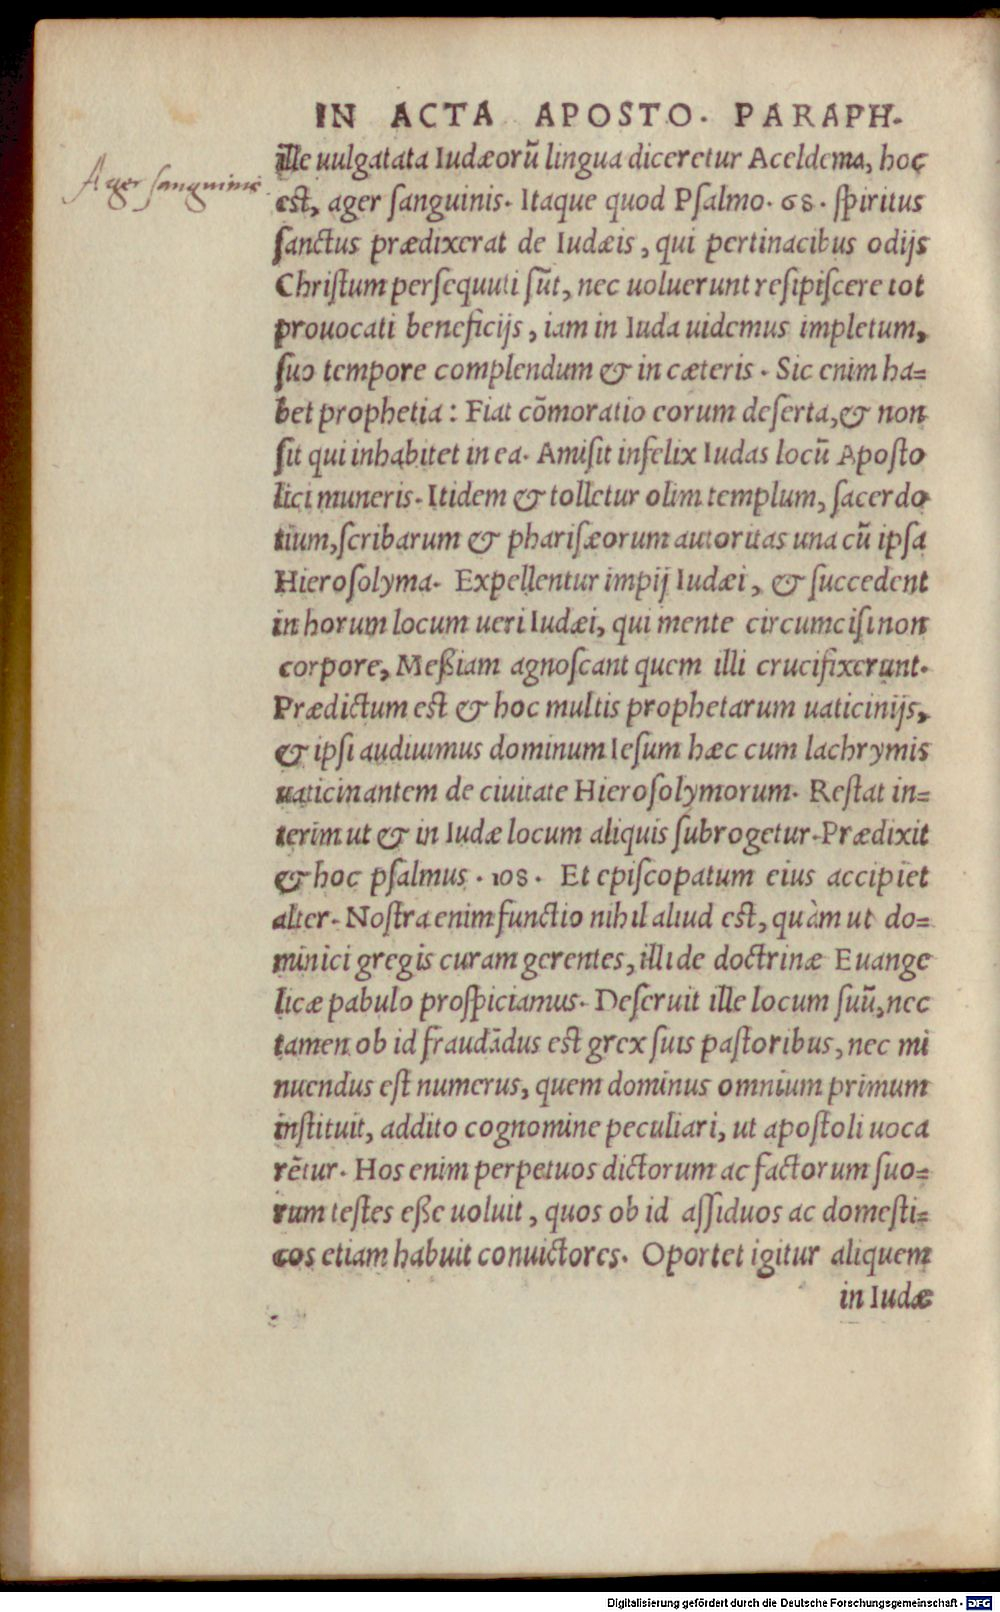 IN ACTA APOSTO. PARAPH.
Ager sanguinis.
ille uulgatata Iudæorũ lingua diceretur Aceldema, hoc
est, ager sanguinis. Itaque quod Psalmo. 68. spiritus
sanctus prædixerat de Iudæis, qui pertinacibus odijs
Christum persequuti sũt, nec uoluerunt resipiscere tot
prouocati beneficijs, iam in Iuda uidemus impletum,
suo tempore complendum & in cæteris. Sic enim ha=
bet prophetia: Fiat cõmoratio eorum deserta, & non
sit qui inhabitet in ea. Amisit infelix Iudas locũ Aposto
lici muneris. Itidem & tolletur olim templum, sacerdo
tium, scribarum & pharisæorum autoritas una cũ ipsa
Hierosolyma. Expellentur impij Iudæi, & succedent
in horum locum ueri Iudæi, qui mente circumcisi non
corpore, Meßiam agnoscant quem illi crucifixerunt.
Prædictum est & hoc multis prophetarum uaticinijs,
& ipsi audiuimus dominum Iesum hæc cum lachrymis
uaticinantem de ciuitate Hierosolymorum. Restat in=
terim ut & in Iudæ locum aliquis subrogetur. Prædixit
& hoc psalmus. 108. Et episcopatum eius accipiet
alter. Nostra enim functio nihil aliud est, quàm ut do=
minici gregis curam gerentes, illi de doctrinæ Euange
licæ pabulo prospiciamus. Deseruit ille locum suũ, nec
tamen ob id fraudãdus est grex suis pastoribus, nec mi
nuendus est numerus, quem dominus omnium primum
instituit, addito cognomine peculiari, ut apostoli uoca
rẽtur. Hos enim perpetuos dictorum ac factorum suo=
rum testes eße uoluit, quos ob id assiduos ac domesti=
cos etiam habuit conuictores. Oportet igitur aliquem
in Iudæ
Digitalisierung gefördert durch die Deutsche Forschungsgemeinschaft - DFG